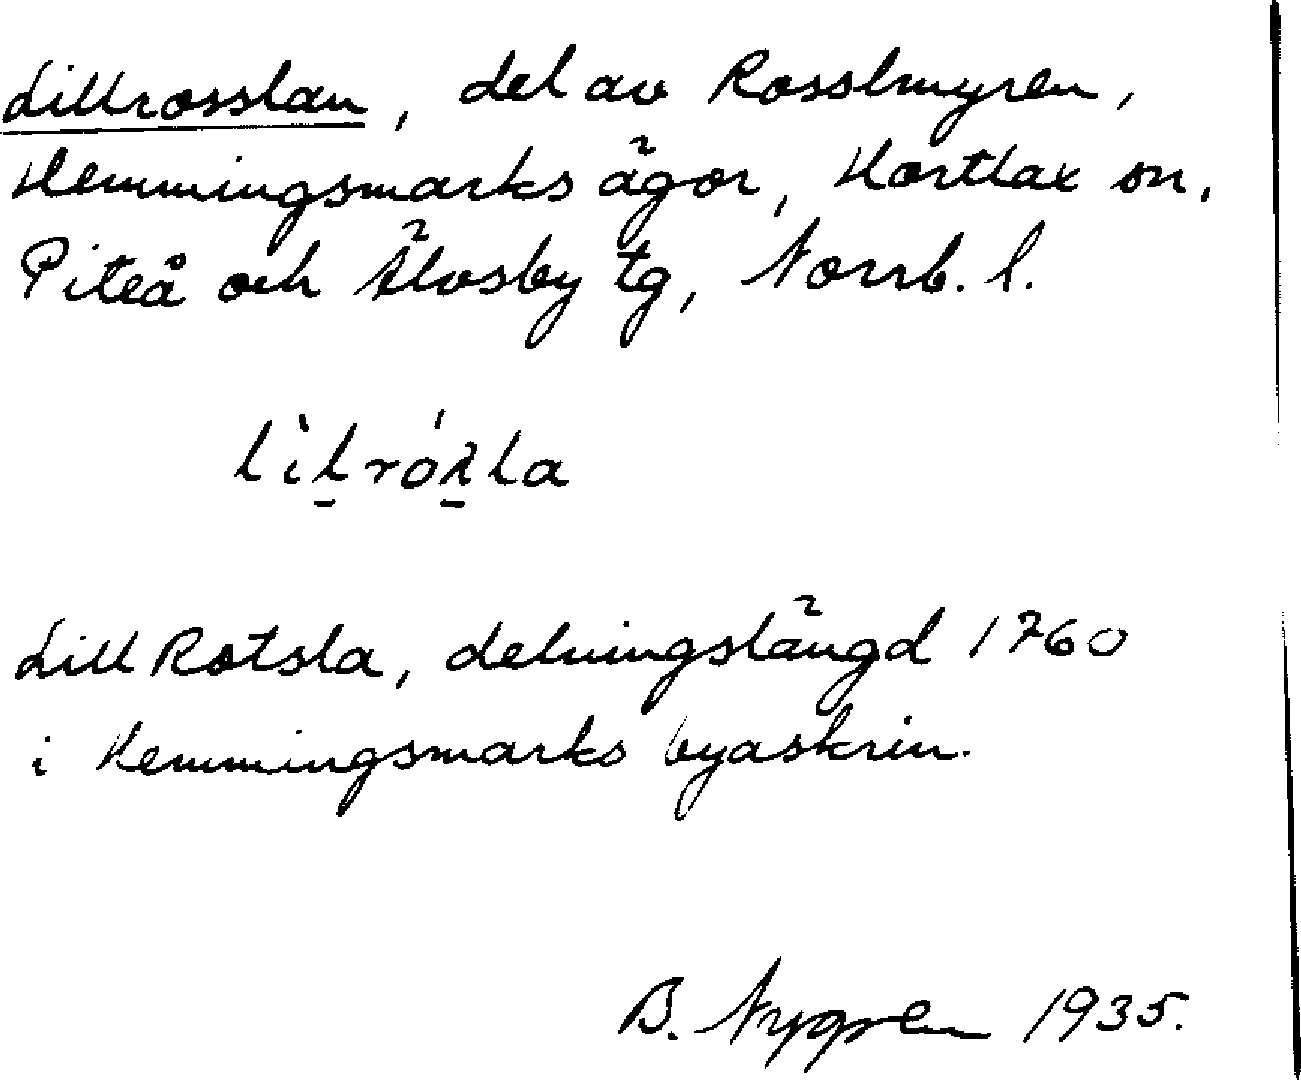 Lillrosslan, del av Rosslmyren,
Hemmingsmarks ägor, Hortlax sn,
Piteå och Älvsby tg, Norrb. l.
Lill Rotsla, delningslängd 1760
i Hemmingsmarks byaskrin.
B. Nygren 1935.